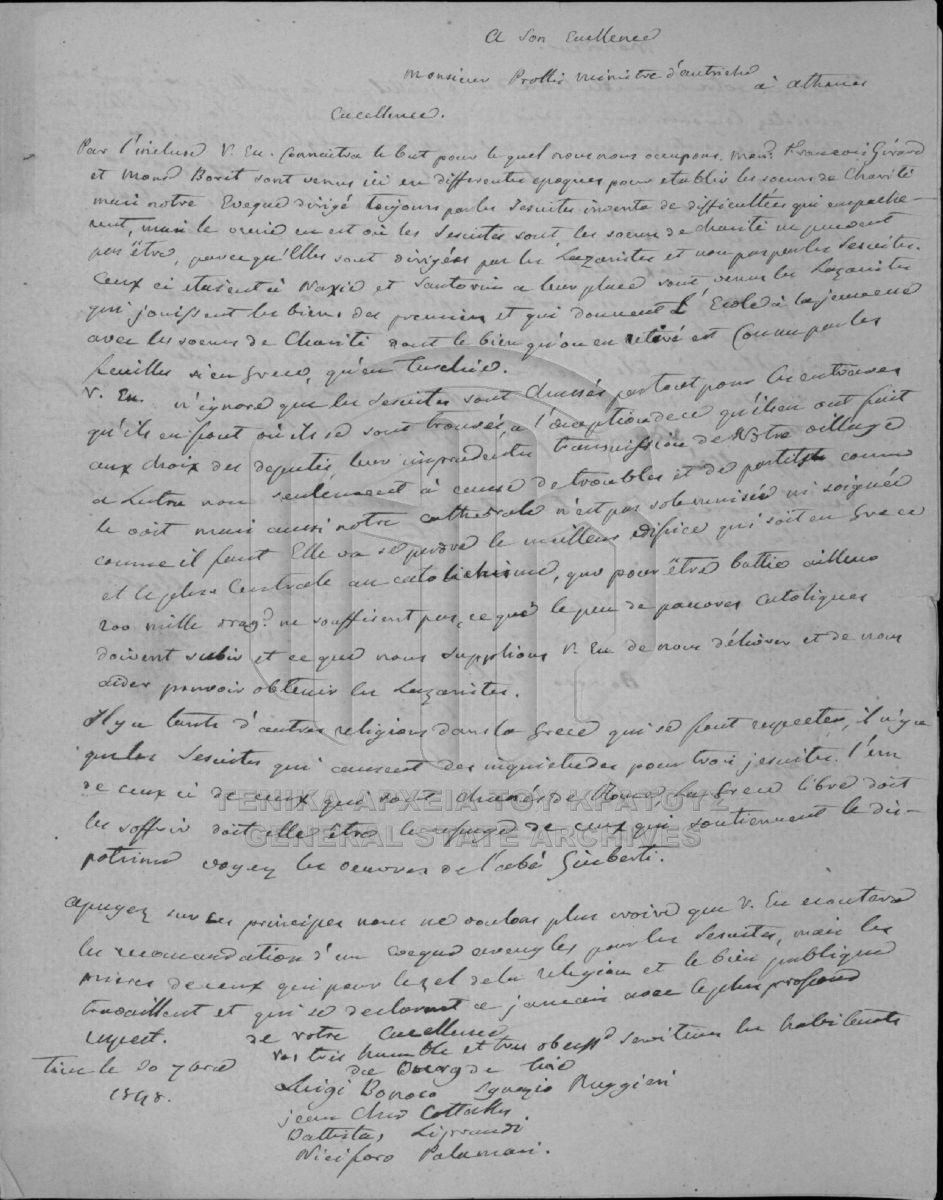 A Son Excellence
Monsieur Prottis ministre d'autriche
à Athenes
Excellence.
Par l'incluse V. Ex. Connaitra le but pour le quel nous nous occupons. Mons. François Girard
et Mons Borit sont venus ici en differentes epoques pour etablir les soeurs de Charité
mais notre Eveque dirigé toujours par les Jesuites invente de difficultées qui empeche-
rent, mais le est où les Jesuites sont, les soeurs de charité ne peuvent
pas être, parce qu'Elles sont dirigées par les Lazaristes et non pas par les Jesuites.
Ceux ci etaient à Naxie et Santorin a leur place sont venus les Lazaristes
qui jouissent les biens des premiers et qui donnent l'Ecole à la jeunesse
avec les soeurs de Charité dont le bien qu'on en retiré est Connu par les
feuilles si en Grece, qu'en Turchie.
V. Ex. n'ignore que les Jesuites sont chassés partout pour les entraves
qu'ils en font où ils se sont trouvés, a l'exception de ce qu'ils en ont fait
aux choix des deputés, leur imprudente transmission de Notre village
a Lutra non seulement à cause de troubles et de partits comme
le doit mais aussi notre cathedrale n'est pas solemnisée ni soignée
comme il faut Elle va se perdre le meilleur edifice qui soit en Grece
et le plus Centrale au catolichisme, que pour être battie ailleurs
200 mille drag. ne souffisent pas, ce que le peu de pauvres catoliques
doivent subir et ce que nous supplions V. Ex de nous délivrer et de nous
aider pouvoir obtenir les Lazaristes.
Il y a tants d'autres religions dans la Grece qui se font respecter, il n'y a
que les Jesuites qui causent des inquietudes pour trois jesuites. l'un
de ceux ci de ceux qui sont chassés de Rome La Grece libre doit
les soffrir doit elle être le refuge de ceux qui soutiennent le dis-
potisme voyez les oeuvres de l'abé Gioberti.
Apuyez sur ces principes nous ne voulons plus croire que V. Ex ecoutera
les recomandation d'un Eveque aveugles pour les Jesuites, mais les
prieres de ceux qui pour le zel de la religion et le bien publique
travaillent et qui se declarent a jamais avec le plus profond
respect. de votre Excellence
Tine le 20 7bre vos tres humble et tres obeiss serviteurs les habitants
1848. du Bourg de Tine
Luigi Bonoco Ignazio Ruggieri
jean Chr Cottakis
Battista Liprandi
Niciforo Palamari.
ΓΕΝΙΚΑ ΑΡΧΕΙΑ ΤΟΥ ΚΡΑΤΟΥΣ
GENERAL STATE ARCHIVES